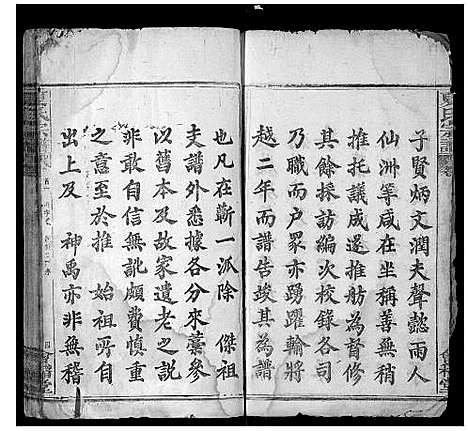 子賢炳文潤夫聲懿雨人
仙洲等咸在坐稱善無稍
推托議成遂推舫為督修
其餘採訪編次校錄各司
乃職而户眾亦踴躍輸將
越二年而譜告竣其為譜
也凡在蘄一派除 傑祖
夫譜外悉據各分來藁參
以舊本及故家遺老之說
非敢自信無訛頗費慎重
之意至於推 始祖所自
出上及 神禹亦非無稽
會稽堂